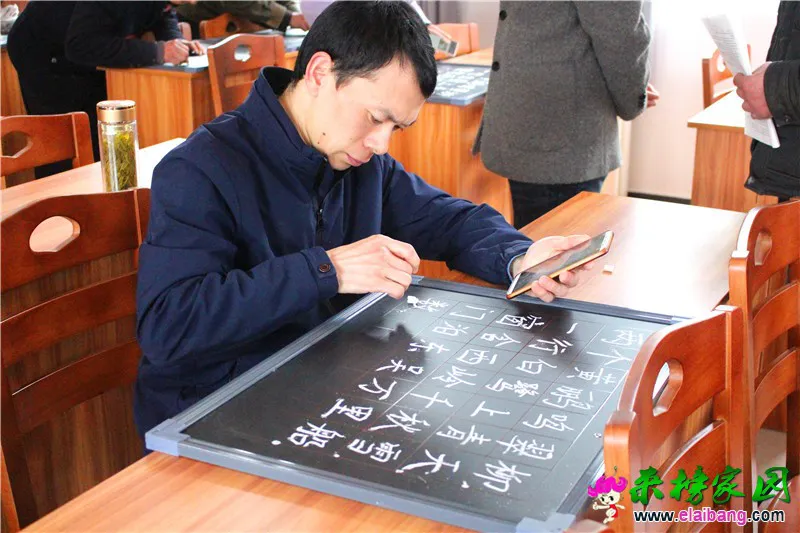 两个黄鹂鸣翠柳
一行白鹭上青天
窗含西岭千秋雪
门泊东吴万里船
来榜家园
www.elaibang.com